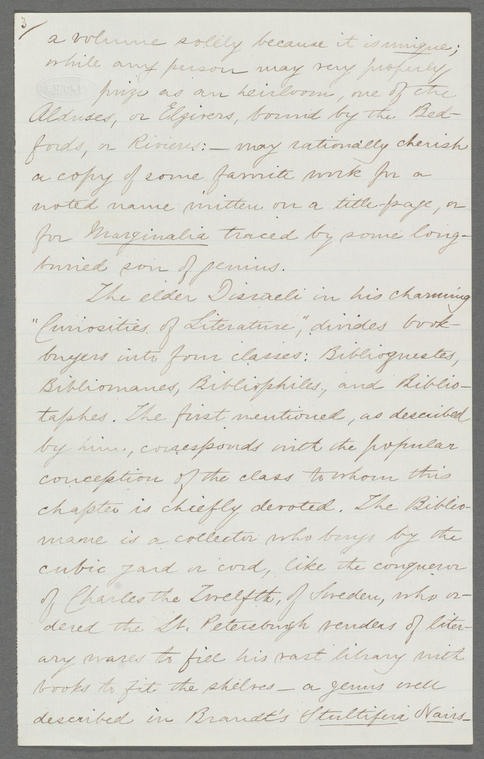 3
a volume solely because it is unique;
while any person may very properly
prize as an heirloom, one of the
Alduses, or Elzivers, bound by the Bed-
fords, or Rivieres:— may rationally cherish
a copy of some favorite work for a
noted name written on a title-page, or
for Marginalia traced by some long-
buried son of genius.
The elder Disraeli in his charming
"Curiosities of Literature", divides book-
buyers into four classes: Bibliognestes,
Bibliomanes, Bibliophiles, and Biblio-
taphes. The first mentioned, as described
by him, corresponds with the popular
conception of the class to whom this
chapter is chiefly devoted. The Biblio-
mane is a collector who buys by the
cubic yard or cord, like the conqueror
of Charles the Twelfth, of Sweden, who or-
dered the St. Petersburgh venders of liter-
ary wares to fill his vast library with
books to fit the shelves — a genus well
described in Brandt's Stultifera Navis—